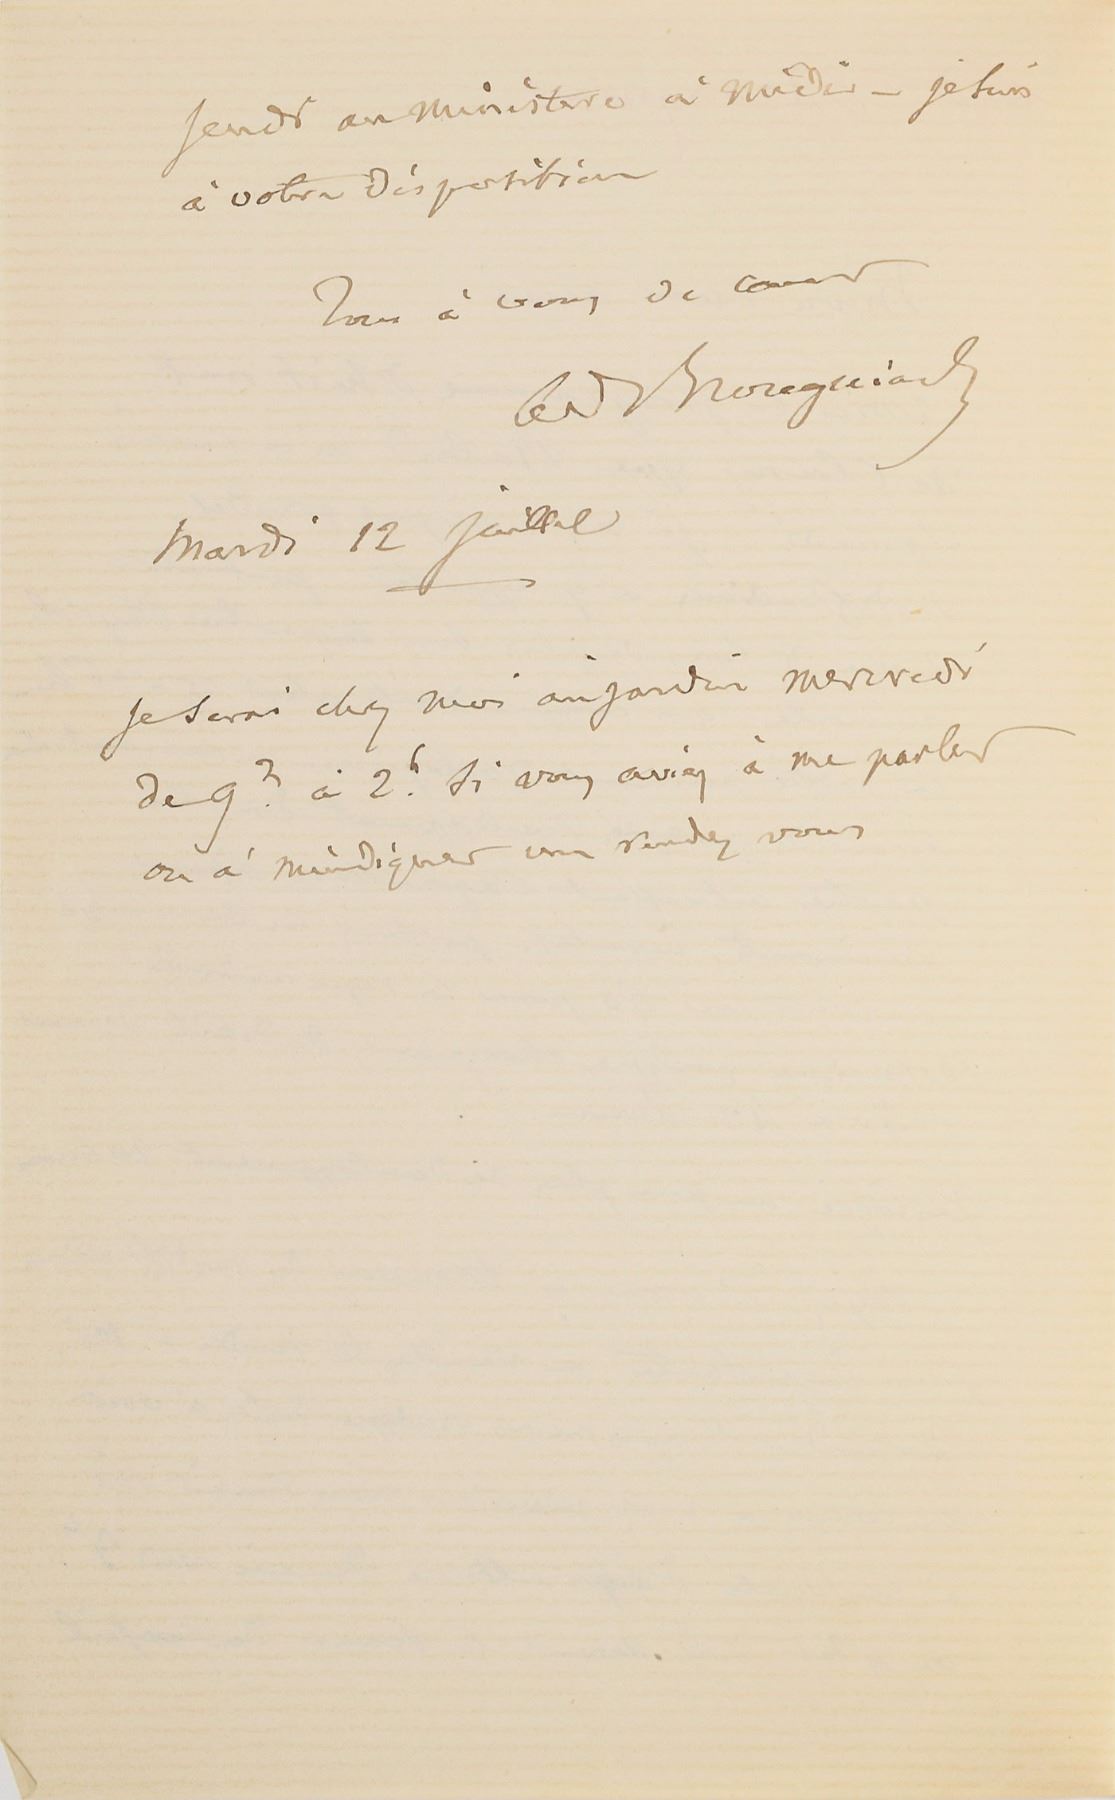 jeudi au ministere à midi – je suis
à votre disposition
Tout à vous de coeur
Ad Brongniart
Mardi 12 juillet
je serai chez moi au jardin mercredi
de 9h à 2h. si vous aviez à me parler
ou à m'indiquer un rendez vous